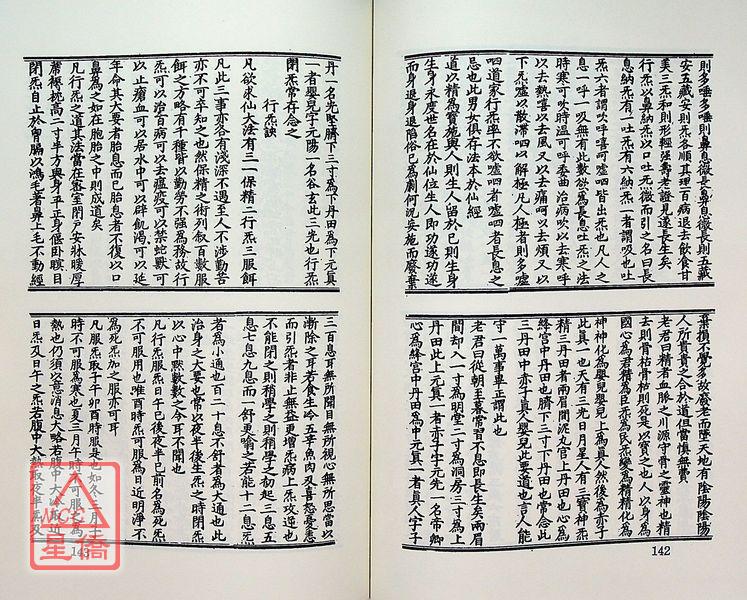 則多唾多唾則鼻息微長鼻息微長則五藏
安五藏安則炁各順其理百病退去飲食甘
美三炁和則形輕強壽老證見遂長生矣
行炁以鼻納炁以口吐炁微而引之名曰長
息納炁有一吐炁有六納炁一者謂吸也吐
炁六者謂吹呼嘻呵噓呬皆出炁也凡人之
息一呼一吸無有此數欲為長息吐炁之法
時寒可吹時溫可呼委曲治病吹以去寒呼
以去熱嘻以去風又以去痛呵以去煩又以
下炁噓以散滯呬以解極凡人極者則多噓
呬道家行炁率不欲噓呬者噓呬者長息之
忌也此男女俱存法本於仙經
道以精為寶施與人則生人留於己則生身
生身永度世名在於仙位生人即功遂功遂
而身退身退陷俗已為劇何況妄施而廢棄
棄損不覺多故廢老而墮天地有陰陽陰陽
人所貴貴之合於道但當慎無費
老君曰精者血脈之川源守骨之靈神也精
去則骨枯骨枯則死是以寶之也人以身為
國心為君精為臣炁為民炁變為精精化為
神神化為嬰兒嬰兒上為真人然後為赤子
此真一也天有三光日月星人有三寶神炁
精三丹田者兩眉間泥丸宮上丹田也心為
絳宮中丹田也臍下三寸下丹田也常念此
三丹田中赤子真人嬰兒此要道也言人能
守一萬事畢正謂此也
老君曰從朝至暮常習不息即長生矣兩眉
間却入一寸為明堂二寸為洞房三寸為上
丹田此上元真一者赤子字元先一名帝卿
心為絳宮中丹田為中元真一者真人字子
142
丹一名先堅臍下三寸為下丹田為下元真
一者嬰兒字元陽一名谷玄此三先也行炁
閉炁常存念之
行炁訣
凡欲求仙大法有三一保精二行炁三服餌
凡此三事亦各有淺深不遇至人不涉勤苦
亦不可卒知之也然保精之術列叙百數服
餌之方略有千種皆以勤勞不強為務故行
炁可以治百病可以去瘟疫可以禁蛇獸可
以止瘡血可以居水中可以辟飢渴可以延
年命其大要者胎息而已胎息者不復以口
鼻為之如在胞胎之中則成道矣
凡行炁之道其法當在密室閉戶安牀暖厚
蓆褥枕高二寸半方與身平正身偃臥瞑目
閉炁自止於胷膈以鴻毛著鼻上毛不動經
三百息耳無所聞目無所視心無所思當以
漸除之耳若食生冷五辛魚肉及喜怒憂恚
而引炁者非止無益更增炁病上炁攻逆也
不能閉之則稍學之則稍學之初起三息五
息七息九息而一舒更噏之若能十二息炁
者為小通也百二十息不舒者為大通也此
治身之大要也常以夜半後生炁之時閉炁
以心中默數數之令耳不聞也
凡行炁服炁日午已後夜半已前名為死炁
不可服用也唯酉時炁可服為日近明淨不
為死炁加之服亦可耳
凡服炁取子午卯酉時服是也如冬三月子
時不可服為寒也夏三月午時不可服為
熱也仍須以意消息大略若腹中大冷取近
日炁及日午之炁若腹中大熱取夜半炁及
143
NICE
星僑